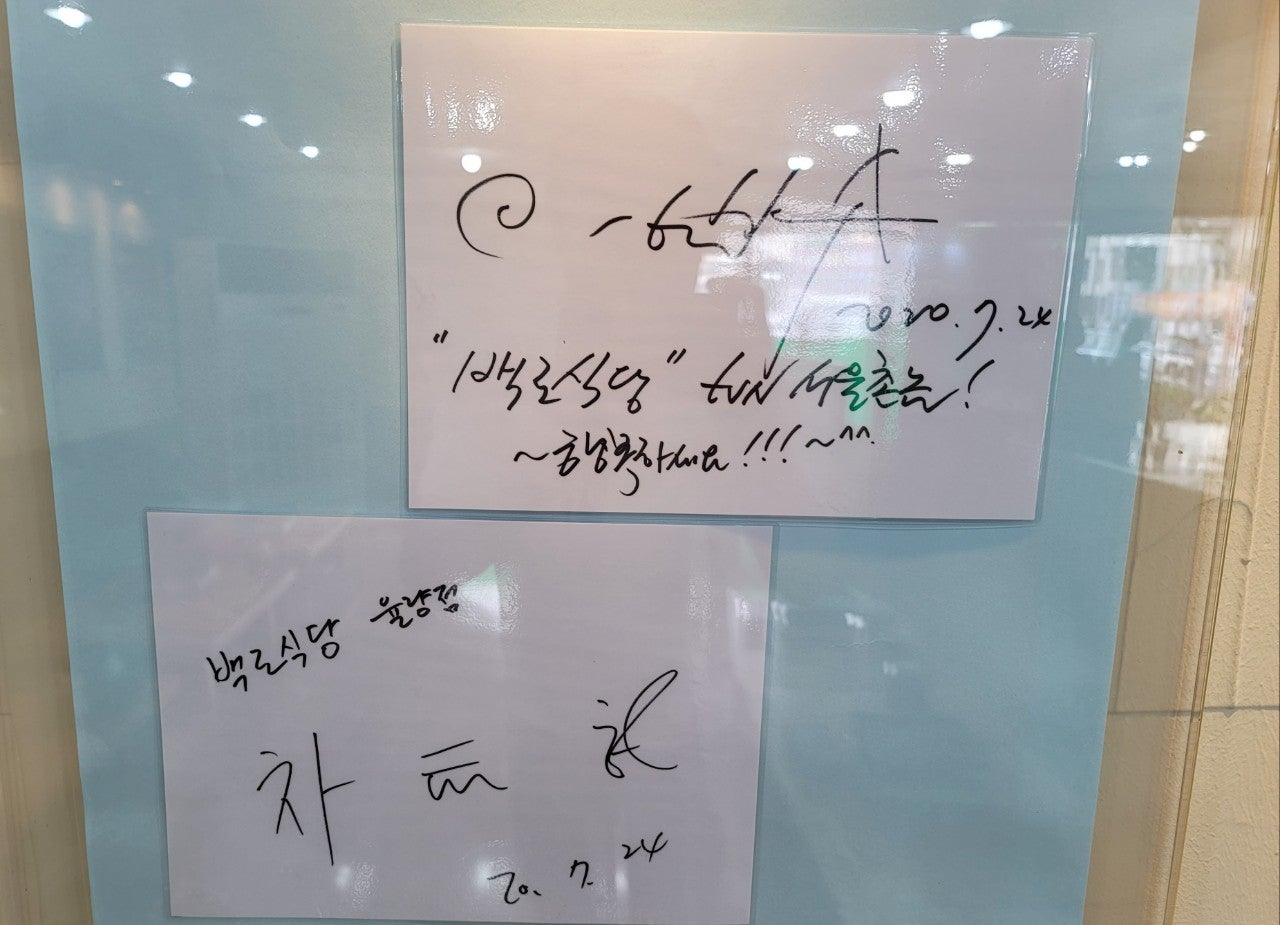 2020. 7. 24
"백로식당" tvN 서울촌놈!
~행복하세요!!!~^^
백로식당 율량점
차태현
20. 7. 24